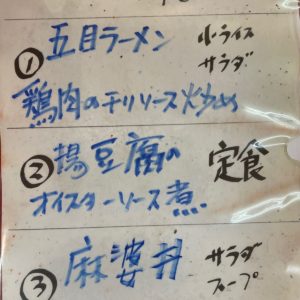 ① 五目ラーメン 小ライス
サラダ
鶏肉のチリソース炒め
② 揚豆腐の 定食
オイスターソース煮
③ 麻婆丼 サラダ
スープ